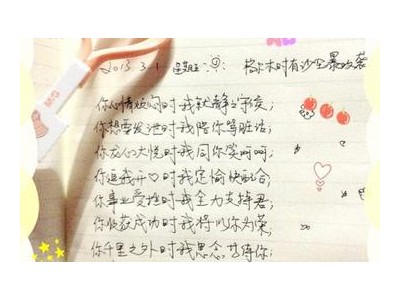 2013 3.1 星期五 格尔木时有沙尘暴攻袭
你心情烦闷时我就静静守候；
你想要发泄时我陪你骂脏话；
你开心大悦时我同你笑呵呵；
你逗我开心时我定愉快配合；
你事业受挫时我全力支持君；
你收获成功时我将以你为荣；
你千里之外时我思念苦待你；